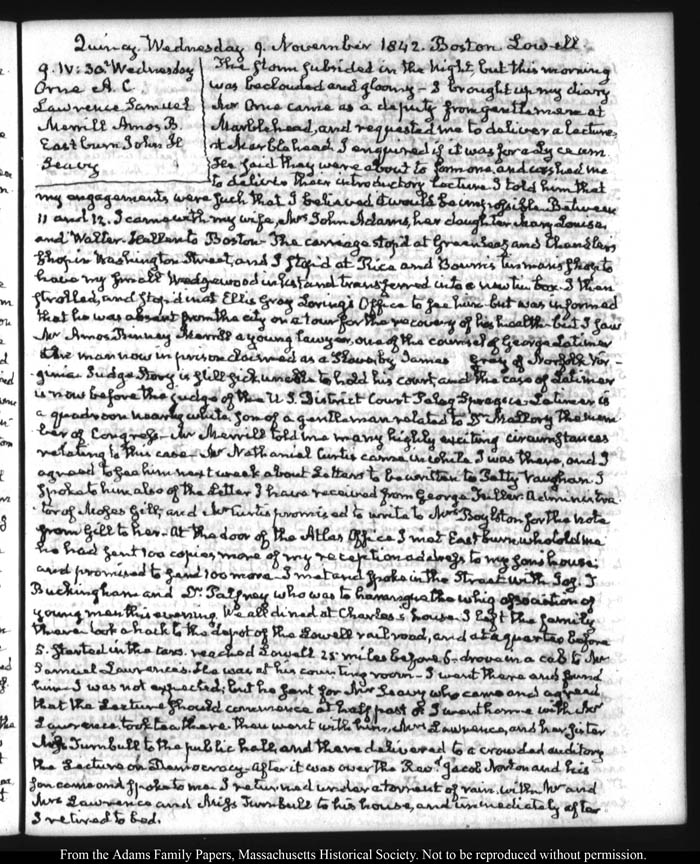 Quincy. Wednesday 9. November 1842. Boston Lowell
9. IV: 30. Wednesday
Orne A. C.
Lawrence Samuel
Merrill Amos B.
Eastburn John H
Seavy
The storm subsided in the night, but this morning
was beclouded and gloomy - I brought up my diary
Mr Orne came as a deputy from gentlemen at
Marblehead, and requested me to deliver a Lecture,
at Marblehead. I enquired if it was for a Lyceum.
He said they were about to form one, and wished me
to deliver their introductory Lecture. I told him that
my engagements were such that I believed it would be impossible. Between
11 and 12. I came with my wife, Mrs John Adams, her daughter Mary Louisa,
and Walter Hellen to Boston - The carriage stop'd at Greenleaf and Chandler's
Shop in Washington Street, and I stop'd at Rice and Bourn's tinman's shop to
have my small Wedgewood inkstand transferred into a new tin box. I then
strolled, and stop'd in at Ellis Gray Loring's Office to see him but was informed
that he was absent from the city on a tour for the recovery of his health - but I saw
Mr Amos Binney Merrill a young lawyer, one of the counsel of George Latimer
the man now in prison claimed as a Slave by James Gray of Norfolk Vir-
ginia. Judge Story is still sick unable to hold his court, and the case of Latimer
is now before the judge of the U.S. District Court Peleg Sprague. Latimer is
a quadroon nearly white, son of a gentleman related to Dr Mallory the mem-
ber of Congress - Mr Merrill told me many highly exciting circumstances
relating to this case - Mr Nathaniel Curtis came in while I was there, and I
agreed to see him next week about Letters to be written to Petty Vaughan. I
spoke to him also of the Letter I have received from George Fuller Administra-
tor of Moses Gill, and Mr Curtis promised to write to Mrs Boylston for the note
from Gill to her - At the door of the Atlas Office I met Eastburn who told me
he had sent 100 copies more of my reception address to my son's house:
and promised to send 100 more - I met and spoke in the Street with Jos. T
Buckingham and Dr Palfrey who was to harangue the whig association of
young men this evening. We all dined at Charles's house. I left the family
there took a hack to the depot of the Lowell railroad, and at a quarter before
5. started in the cars. reached Lowell 25 miles before 6 - drove in a cab to Mr
Samuel Lawrence's. He was at his counting room - I went there and found
him. I was not expected; but he sent for Mr Seavy who came and agreed
that the Lecture should commence at half past 7 I went home with Mr
Lawrence took tea there then went with him, Mrs Lawrence, and her sister
Miss Turnbull to the public hall, and there delivered to a crowded auditory
the Lecture on Democracy - After it was over the Revd Jacob Norton and his
son came and spoke to me. I returned under a torrent of rain, with Mr and
Mrs Lawrence and Miss Turnbull to his house, and immediately after
I retired to bed.
From the Adams Family Papers, Massachusetts Historical Society. Not to be reproduced without permission.